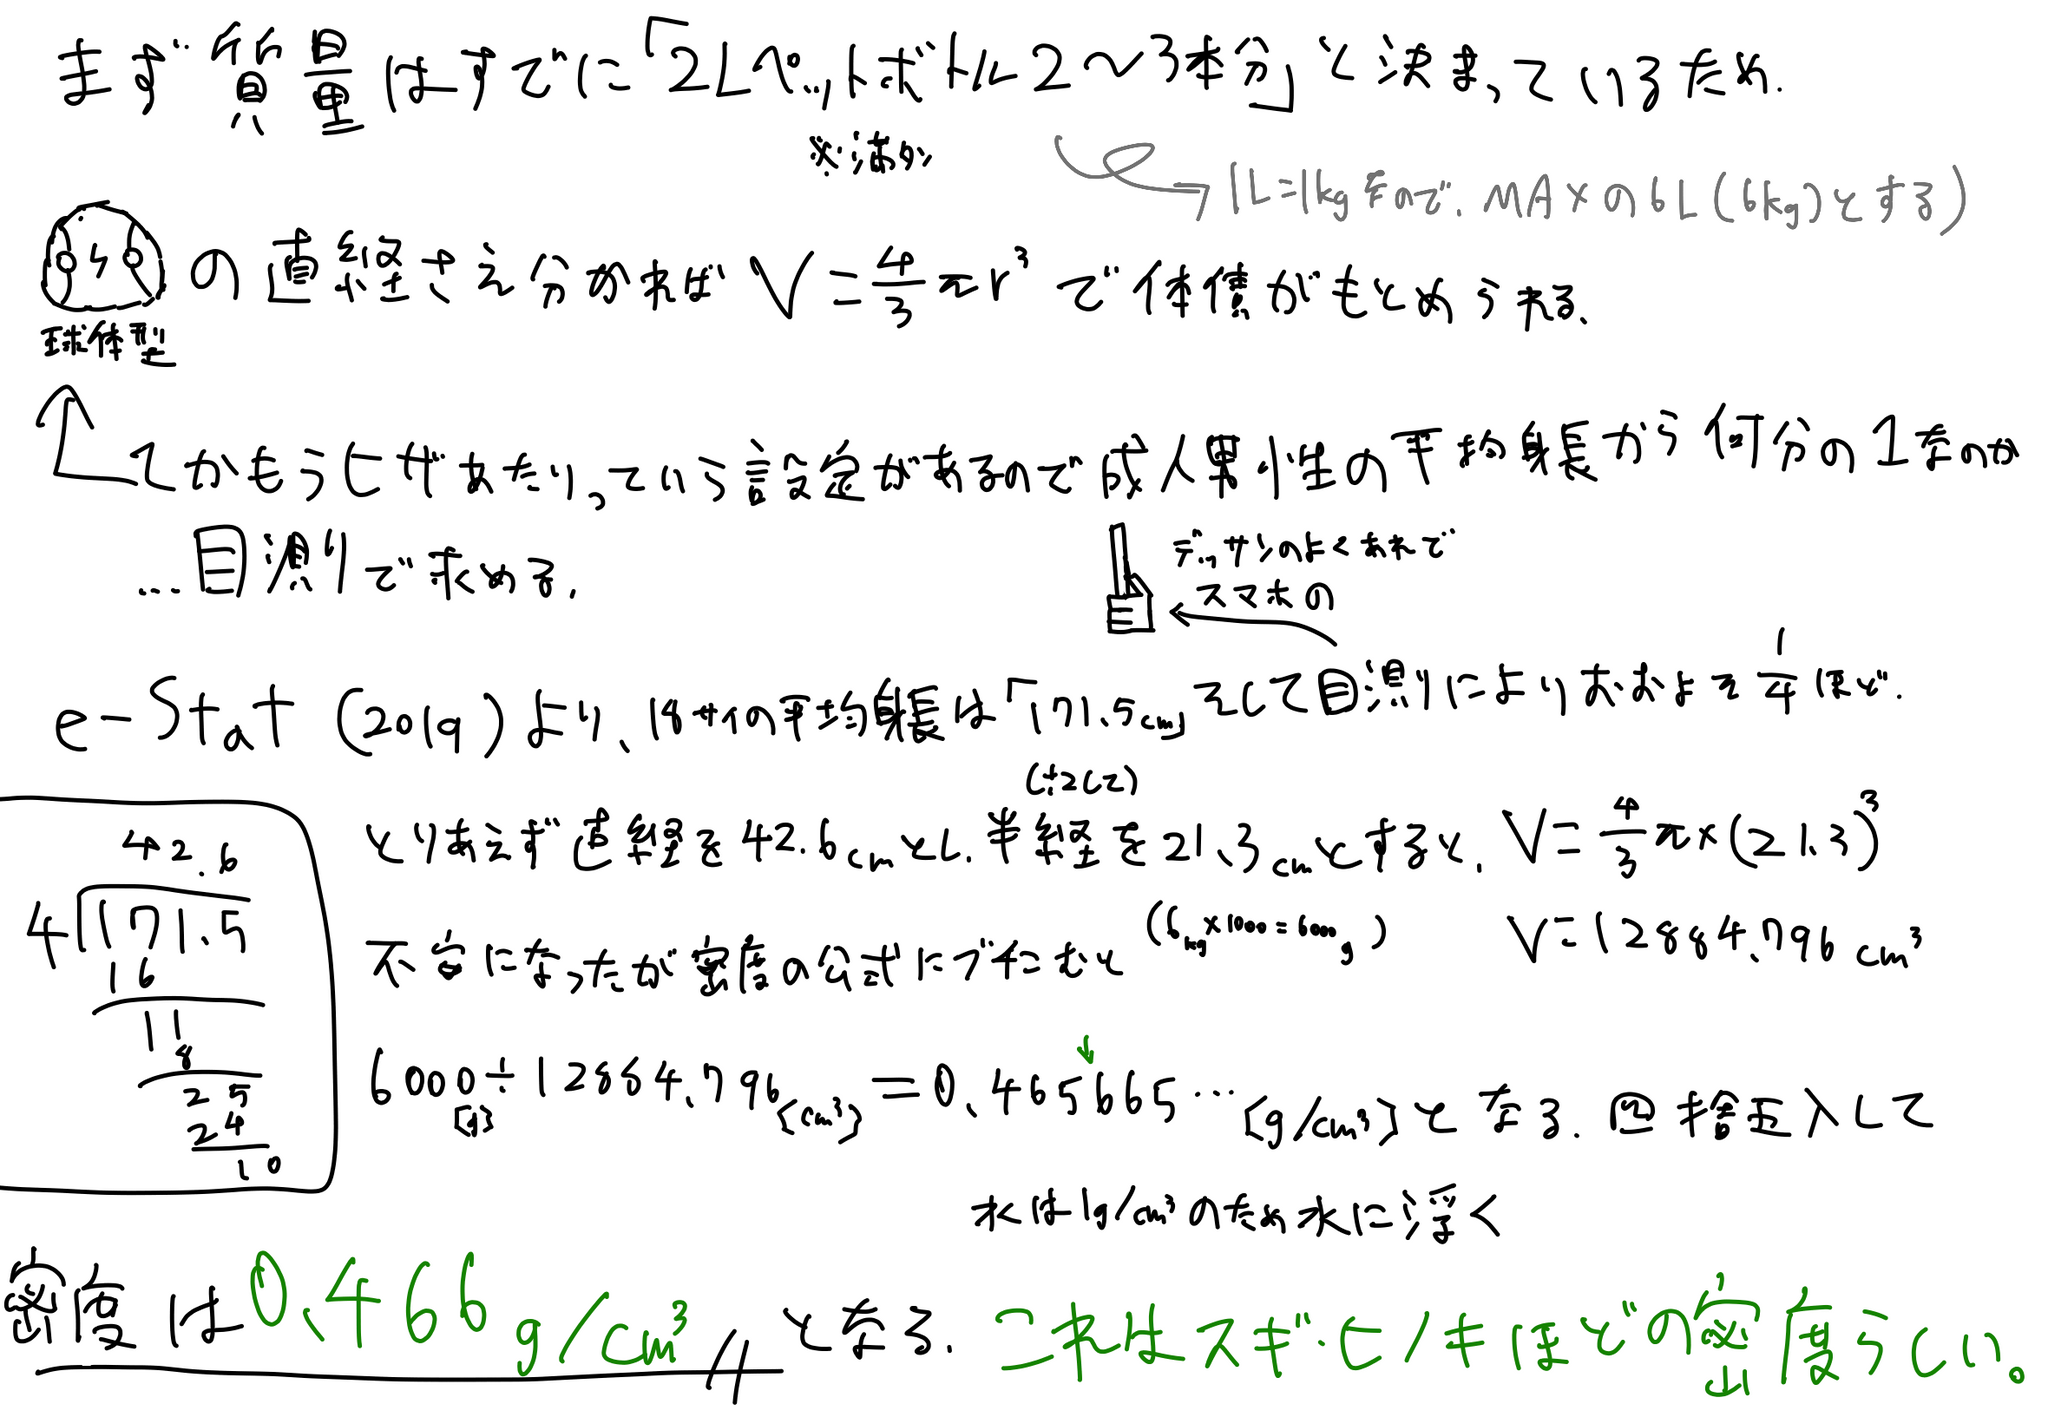 まず質量はすでに「2Lペットボトル2〜3本分」と決まっているため.
※満タン
→1L=1kgなので、MAXの6L(6kg)とする)
の直経さえ分かればV=4/3πr³で体積がもとめられる、
球体型
てかもうヒザあたりっていう設定があるので成人男性の平均身長から何分の1なのか
…目測りで求める.
デッサンのよくあれで
スマホの
e-Stat (2019)より、18サイの平均身長は「171.5cm」そして目測りによりおおよそ1/4ほど.
(÷2して)
とりあえず直経を42.6cmとし.半経を21.3cmとすると、V=4/3π×(21.3)³
42.6
4)171.5
16
11
8
25
24
10
不安になったが密度の公式にブチこむと (6kg×1000=6000g) V=12884.796cm³
6000[g]÷12884.796[cm³]=0.465665…[g/cm³]となる.四捨五入して
水は1g/cm³のため水に浮く
密度は0.466g/cm³となる.これはスギ・ヒノキほどの密度らしい。